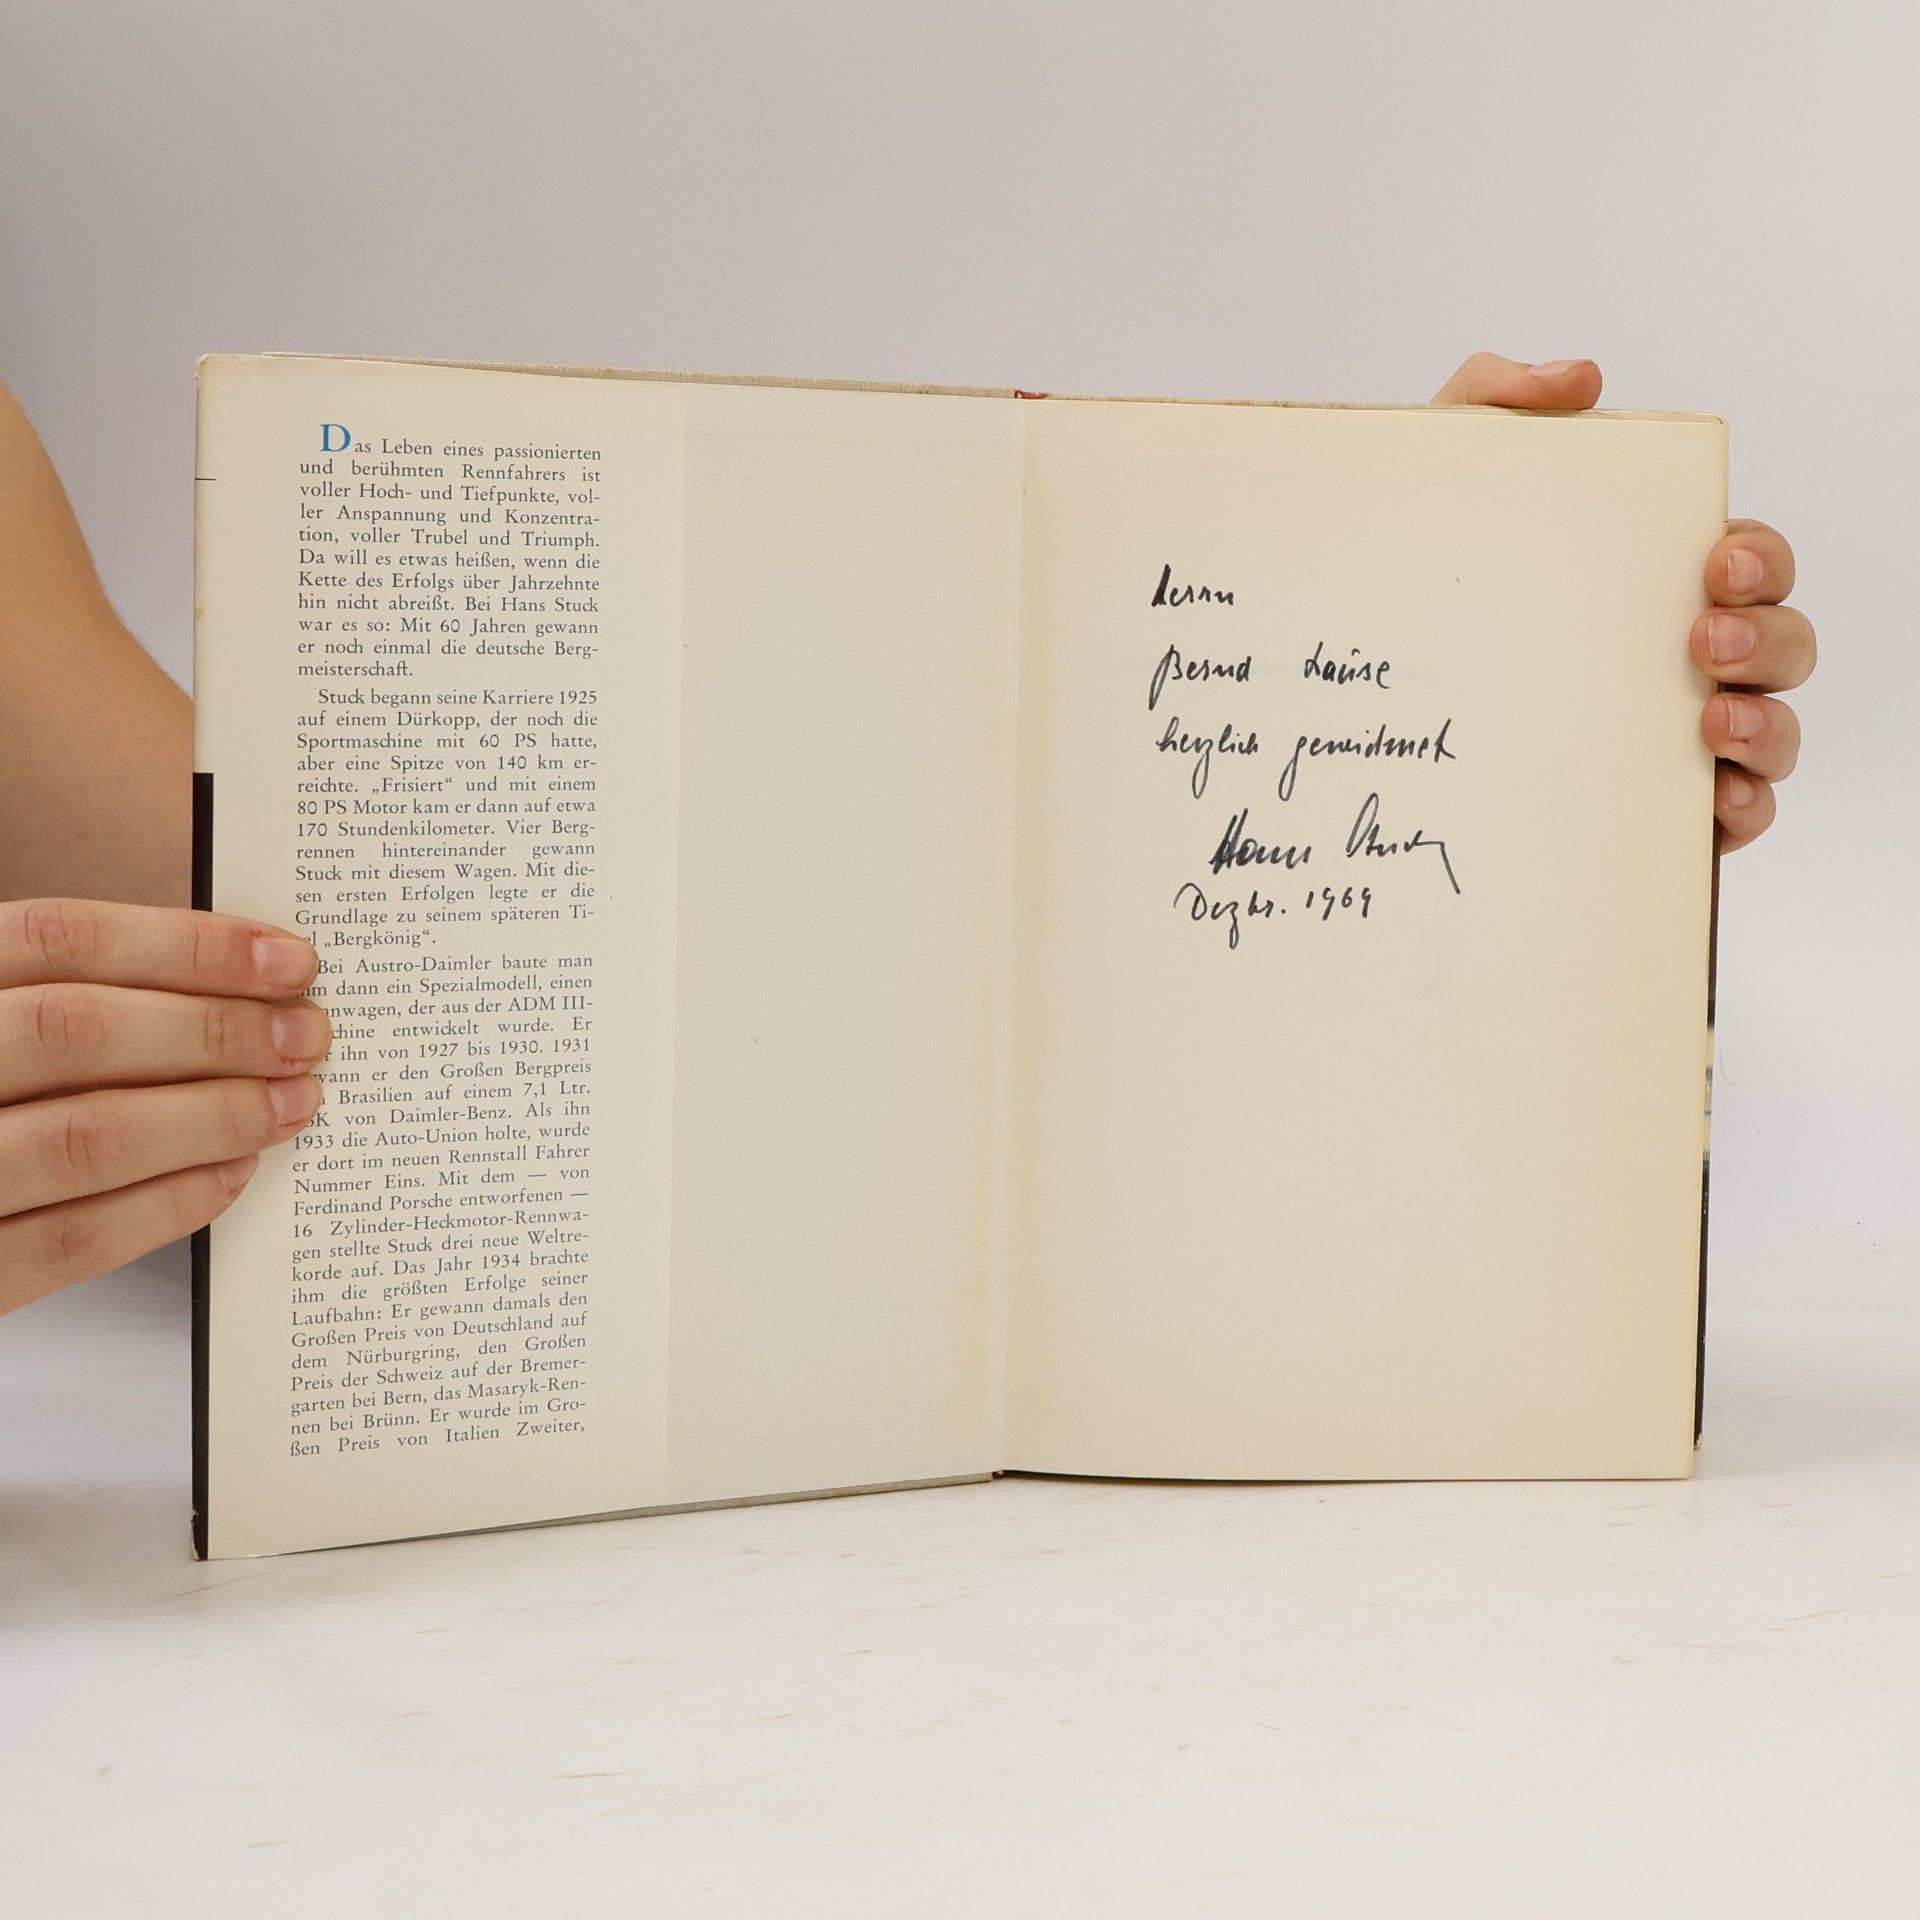 Das Leben eines passionierten
und berühmten Rennfahrers ist
voller Hoch- und Tiefpunkte, vol-
ler Anspannung und Konzentra-
tion, voller Trubel und Triumph.
Da will es etwas heißen, wenn die
Kette des Erfolgs über Jahrzehnte
hin nicht abreißt. Bei Hans Stuck
war es so: Mit 60 Jahren gewann
er noch einmal die deutsche Berg-
meisterschaft.
Stuck begann seine Karriere 1925
auf einem Dürkopp, der noch die
Sportmaschine mit 60 PS hatte,
aber eine Spitze von 140 km er-
reichte. „Frisiert“ und mit einem
80 PS Motor kam er dann auf etwa
170 Stundenkilometer. Vier Berg-
rennen hintereinander gewann
Stuck mit diesem Wagen. Mit die-
sen ersten Erfolgen legte er die
Grundlage zu seinem späteren Ti-
el „Bergkönig“.
Bei Austro-Daimler baute man
hm dann ein Spezialmodell, einen
nnwagen, der aus der ADM III-
chine entwickelt wurde. Er
r ihn von 1927 bis 1930. 1931
wann er den Großen Bergpreis
Brasilien auf einem 7,1 Ltr.
SK von Daimler-Benz. Als ihn
1933 die Auto-Union holte, wurde
er dort im neuen Rennstall Fahrer
Nummer Eins. Mit dem — von
Ferdinand Porsche entworfenen —
16 Zylinder-Heckmotor-Rennwa-
gen stellte Stuck drei neue Weltre-
korde auf. Das Jahr 1934 brachte
ihm die größten Erfolge seiner
Laufbahn: Er gewann damals den
Großen Preis von Deutschland auf
dem Nürburgring, den Großen
Preis der Schweiz auf der Bremer-
garten bei Bern, das Masaryk-Ren-
nen bei Brünn. Er wurde im Gro-
ßen Preis von Italien Zweiter,
Herrn
Bernd
herzlich gewidmet
Hans Stuck
Dezbr. 1969